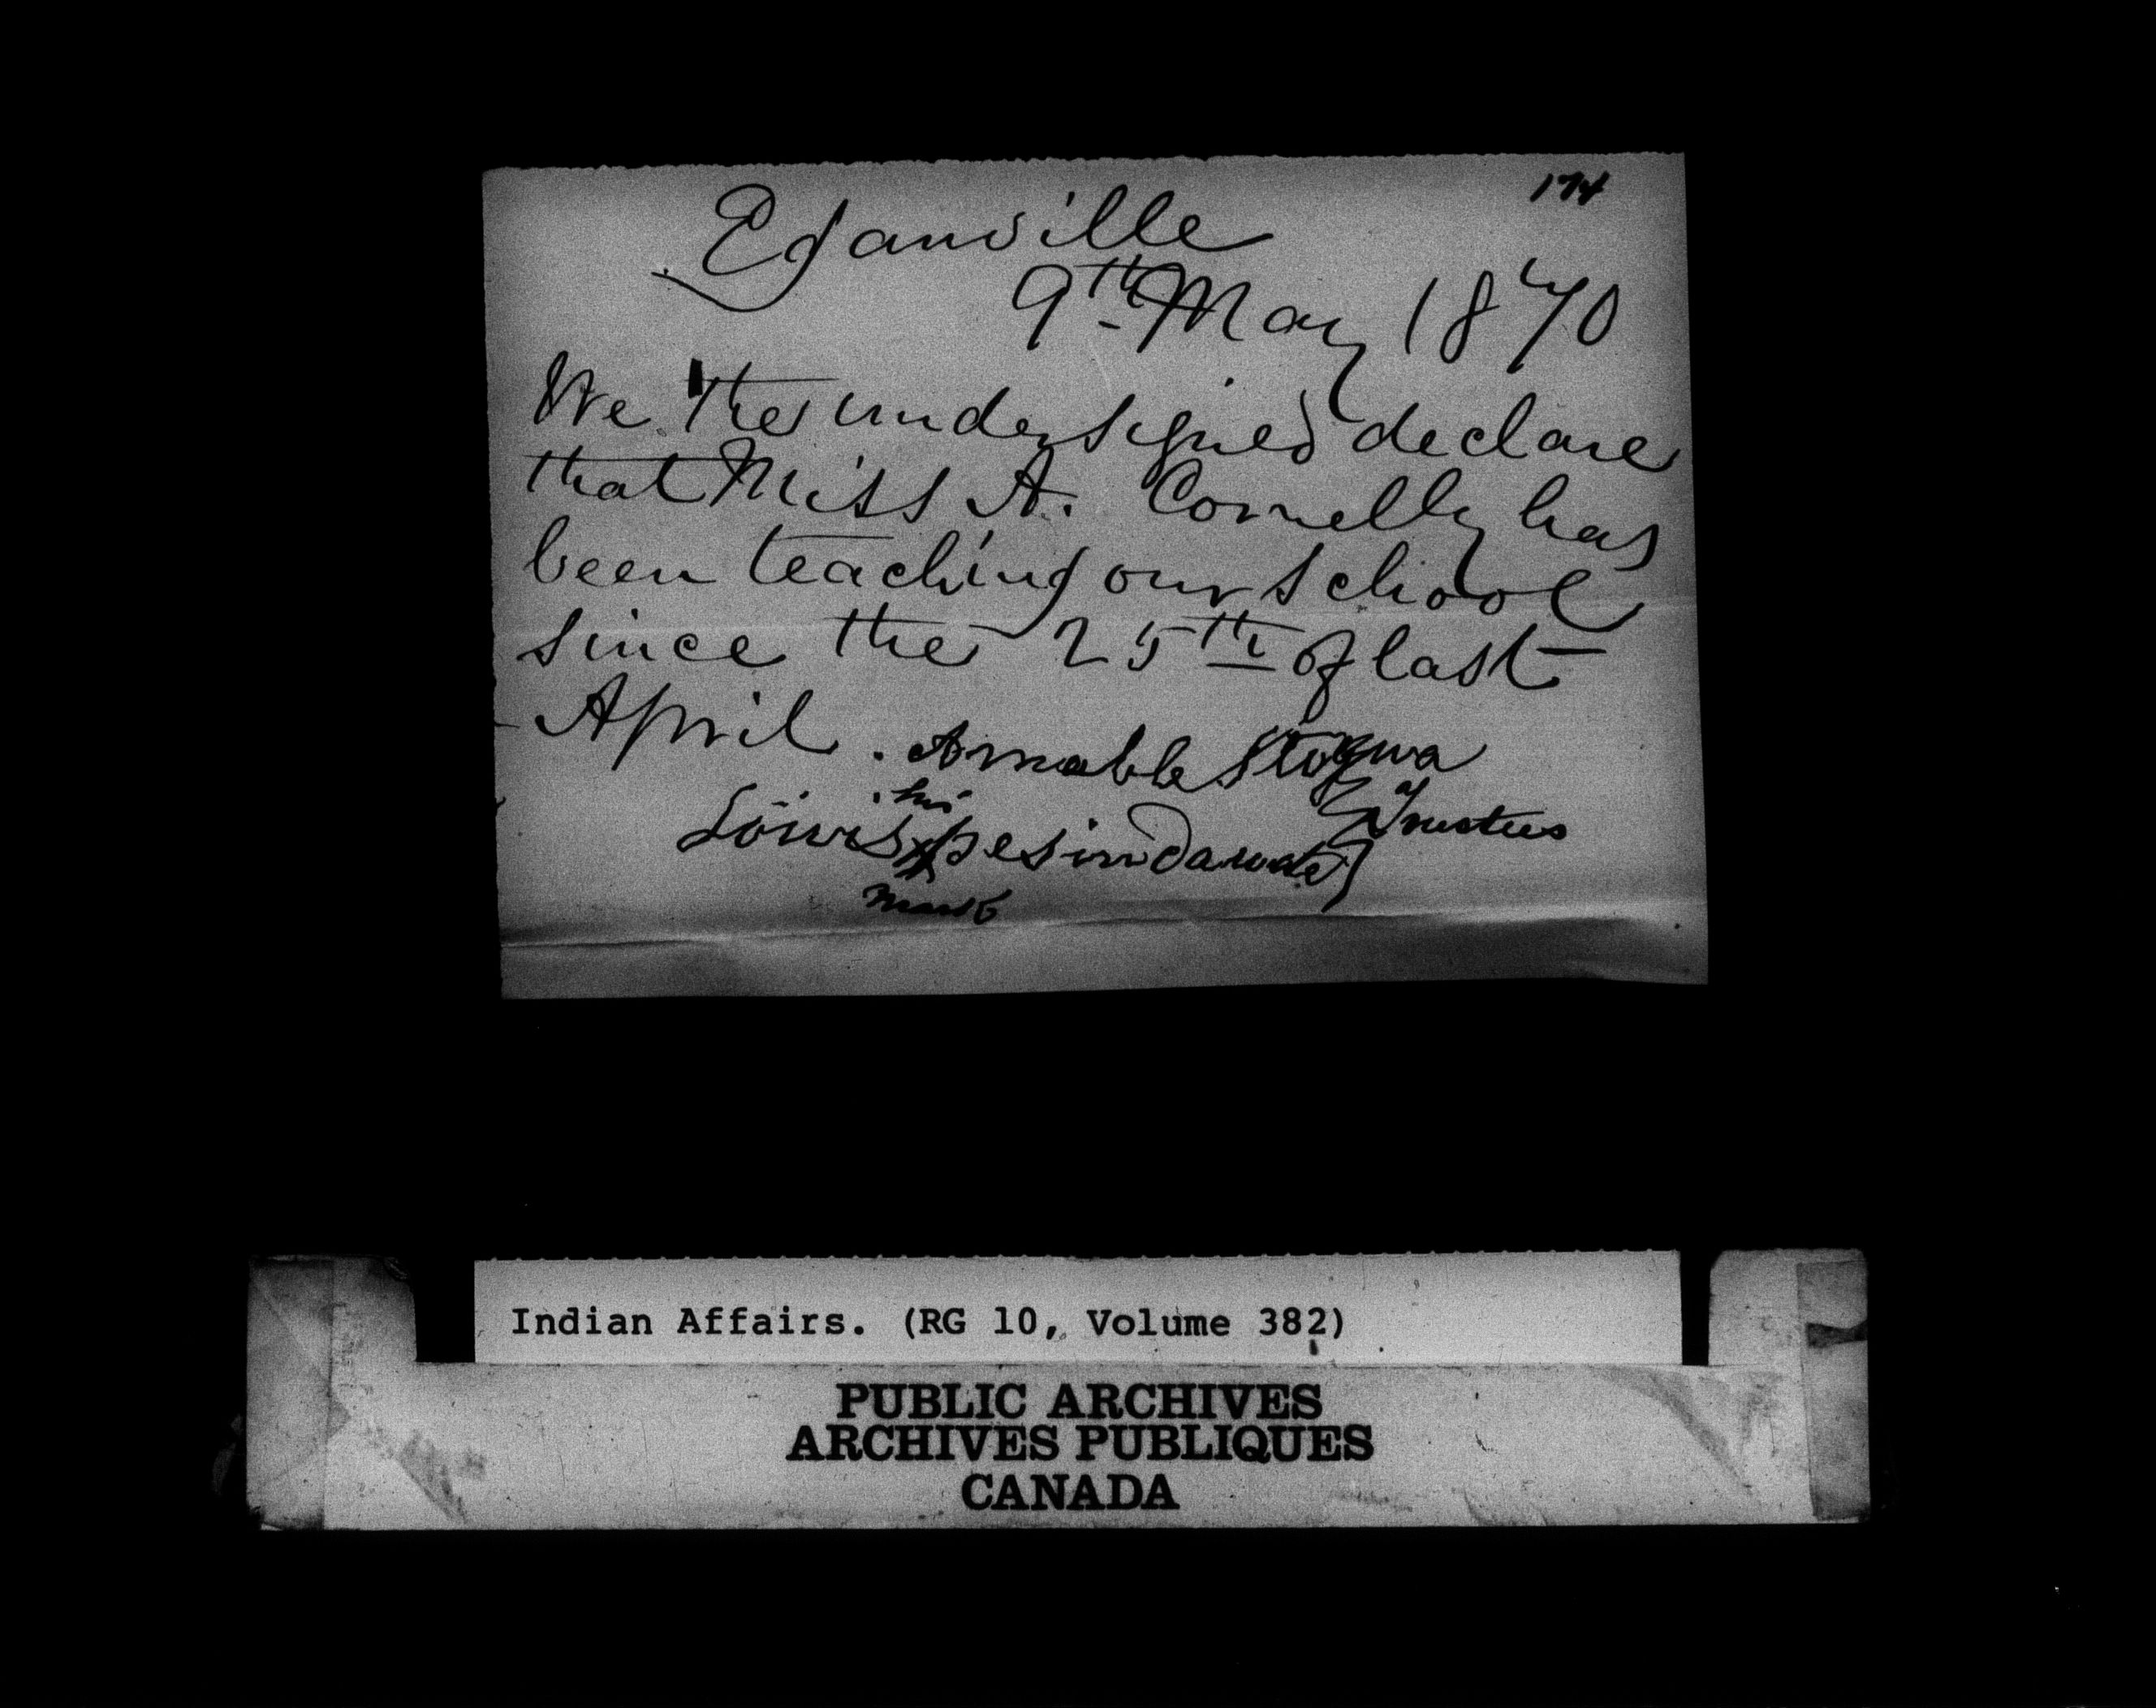 174
Eganville
9th May 1870
We the undersigned declare
that Miss A. Connelly has
been teaching our school
since the 25th of last
April.
Amable
his
Louis X
mark
Trustees
Indian Affairs. (RG 10, Volume 382)
PUBLIC ARCHIVES
ARCHIVES PUBLIQUES
CANADA